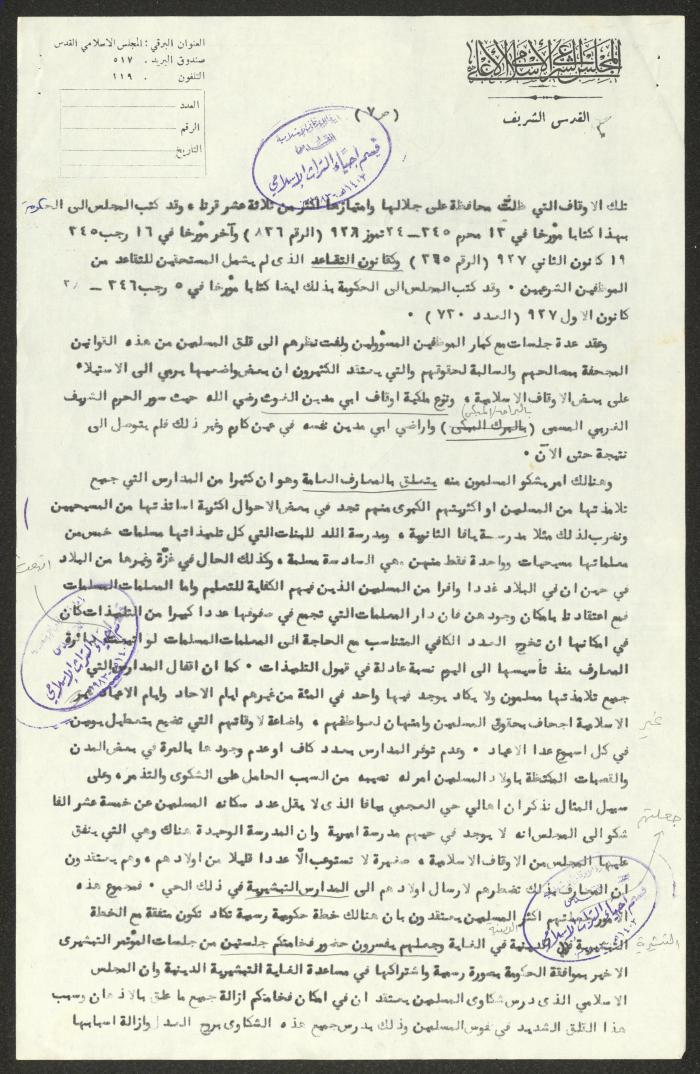 المجلس الشرعي الإسلامي الأعلى
القدس الشريف
العنوان البرقي : المجلس الاسلامي القدس
صندوق البريد . ٥١٧
التلفون . ١١٩
العدد
الرقم
التاريخ
(ص ٧)
قسم احياء التراث الإسلامي
تلك الاوقاف التي ظلت محافظة على جلالها وامتيازها اكثر من ثلاثة عشر قرنا ، وقد كتب المجلس الى الحكومة
بهذا كتابا مؤرخا في ١٣ محرم ٣٤٥ــ ٢٤ تموز ٩٢٦ (الرقم ٨٢٦) وآخر مؤرخا في ١٦ رجب ٣٤٥
١٩ كانون الثاني ٩٢٧ (الرقم ٣٦٥) وكقانون التقاعد الذى لم يشمل المستحقين للتقاعد من
الموظفين الشرعيين ٠ وقد كتب المجلس الى الحكومة بذلك ايضا كتابا مؤرخا في ٥ رجب ٣٤٦ ــ
كانون الاول ٩٢٧ (العدد ٧٢٠) ٠
وعقد عدة جلسات مع كبار الموظفين المسؤولين ولفت نظرهم الى قلق المسلمين من هذه القوانين
المجحفة بمصالحهم والسالبة لحقوقهم والتي يعتقد الكثيرون ان بعض واضعيها يرمي الى الاستيلاء
على بعض الاوقاف الاسلامية ، ونزع ملكية اوقاف ابي مدين الغوث رضي الله حيث سور الحرم الشريف
الغربي المسمى (بالبرك المبكى) واراضي ابي مدين نفسه في عين كارم وغير ذلك فلم يتوصل الى
نتيجة حتى الآن ٠
وهنالك امر يشكو المسلمون منه يتعلق بالمعارف العامة وهو ان كثيرا من المدارس التي جميع
تلامذتها من المسلمين او اكثريتهم الكبرى منهم تجد في بعض الاحوال اكثرية اساتذتها من المسيحيين
ونضرب لذلك مثلا مدرسة يافا الثانوية ، ومدرسة اللد للبنات التي كل تلميذاتها مسلمات خمس من
معلماتها مسيحيات وواحدة فقط منهن ـ هي السادسة مسلمة ، وكذلك الحال في غزّة وغيرها من البلاد
في حين ان في البلاد عددا وافرا من المسلمين الذين فيهم الكفاية للتعليم واما المعلمات المسلمات
فمع اعتقادنا بامكان وجودهن فان دار المعلمات التي تجمع في صفوفها عددا كبيرا من التلميذات كان
في امكانها ان تخرج العدد الكافي المتناسب مع الحاجة الى المعلمات المسلمات لو اتبعت دائرة
المعارف منذ تأسيسها الى اليوم نسبة عادلة في قبول التلميذات ٠ كما ان اقفال المدارس التي
جميع تلامذتها مسلمون ولا يكاد يوجد فيها واحد في المئة من غيرهم ايام الاحاد وايام الاعياد غير
الاسلامية اجحاف بحقوق المسلمين وامتهان لعواطفهم ، واضاعة لاوقاتهم التي تضيع بتعطيل يومين
في كل اسبوع عدا الاعياد ٠ وعدم توفر المدارس بعدد كاف او عدم وجودها بالمرة في بعض المدن
والقصبات المكتظة باولاد المسلمين امر له نصيبه من السبب الحامل على الشكوى والتذمر ، وعلى
سبيل المثال نذكر ان اهالي حي العجمي بيافا الذى لا يقل عدد سكانه المسلمين عن خمسة عشر الفا
شكو الى المجلس انه لا يوجد في حيهم مدرسة اميرية وان المدرسة الوحيدة هناك وهي التي ينفق
عليها المجلس من الاوقاف الاسلامية ، صغيرة لا تستوعب الّا عددا قليلا من اولادهم ، وهم يعتقدون
ان المعارف بذلك تضطرهم لارسال اولادهم الى المدارس التبشيرية في ذلك الحي ٠ فمجموع هذه
الامور جعلتهم اكثر المسلمين يعتقدون بان هنالك خطة حكومية رسمية تكاد تكون متفقة مع الخطة
التبشيرية الدينية في الغاية وجعلهم يفسرون حضور فخامتكم جلستين من جلسات المؤتمر التبشيرى
الاخير بموافقة الحكومة بصورة رسمية واشتراكها في مساعدة الغاية التبشيرية الدينية وان المجلس
الاسلامي الذى درس شكاوى المسلمين يعتقد ان في امكان فخامتكم ازالة جميع ما علق بالاذهان وسبب
هذا القلق الشديد في نفوس المسلمين وذلك بدرس جميع هذه الشكاوى بروح العدل وازالة اسبابها
غير
جعلتهم
التبشيرية